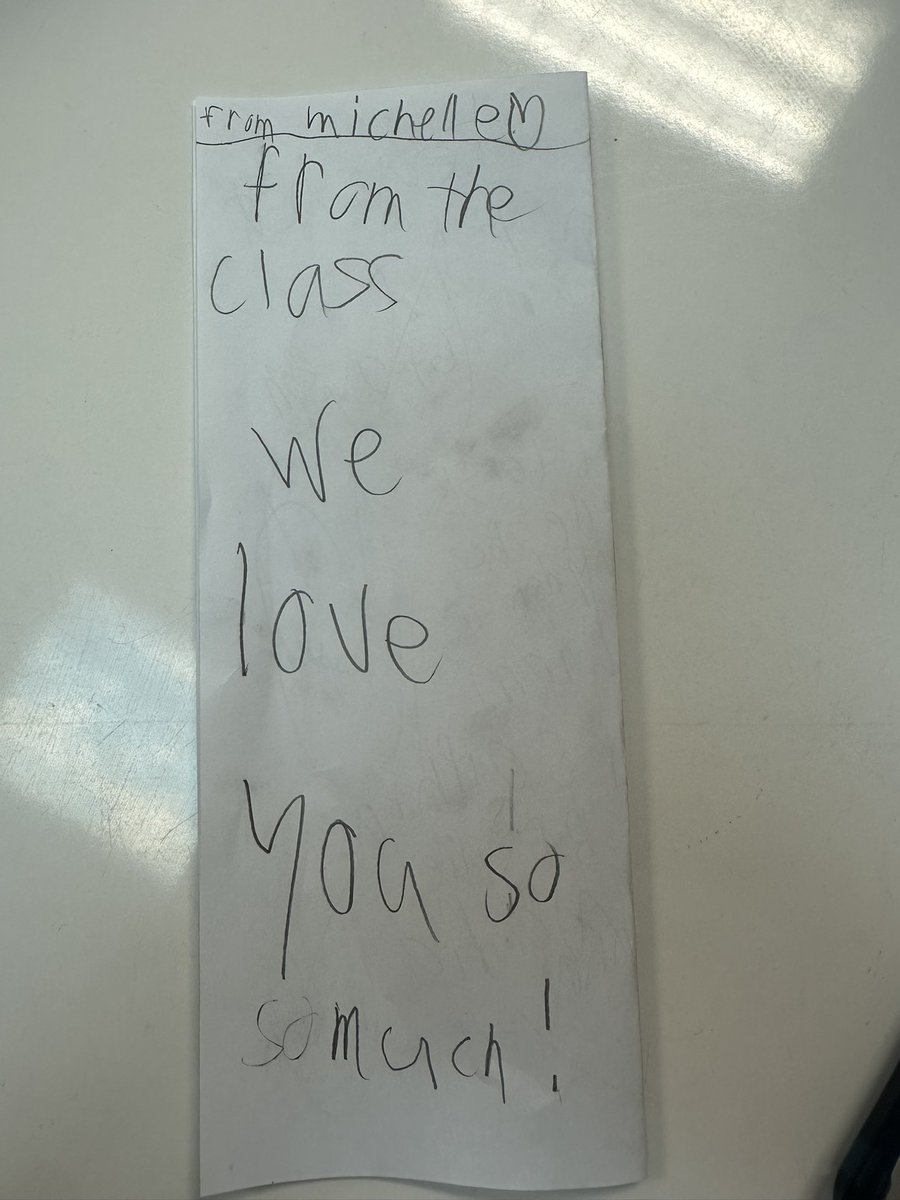 from michelle♡
from the
class
We
love
you so
so much!